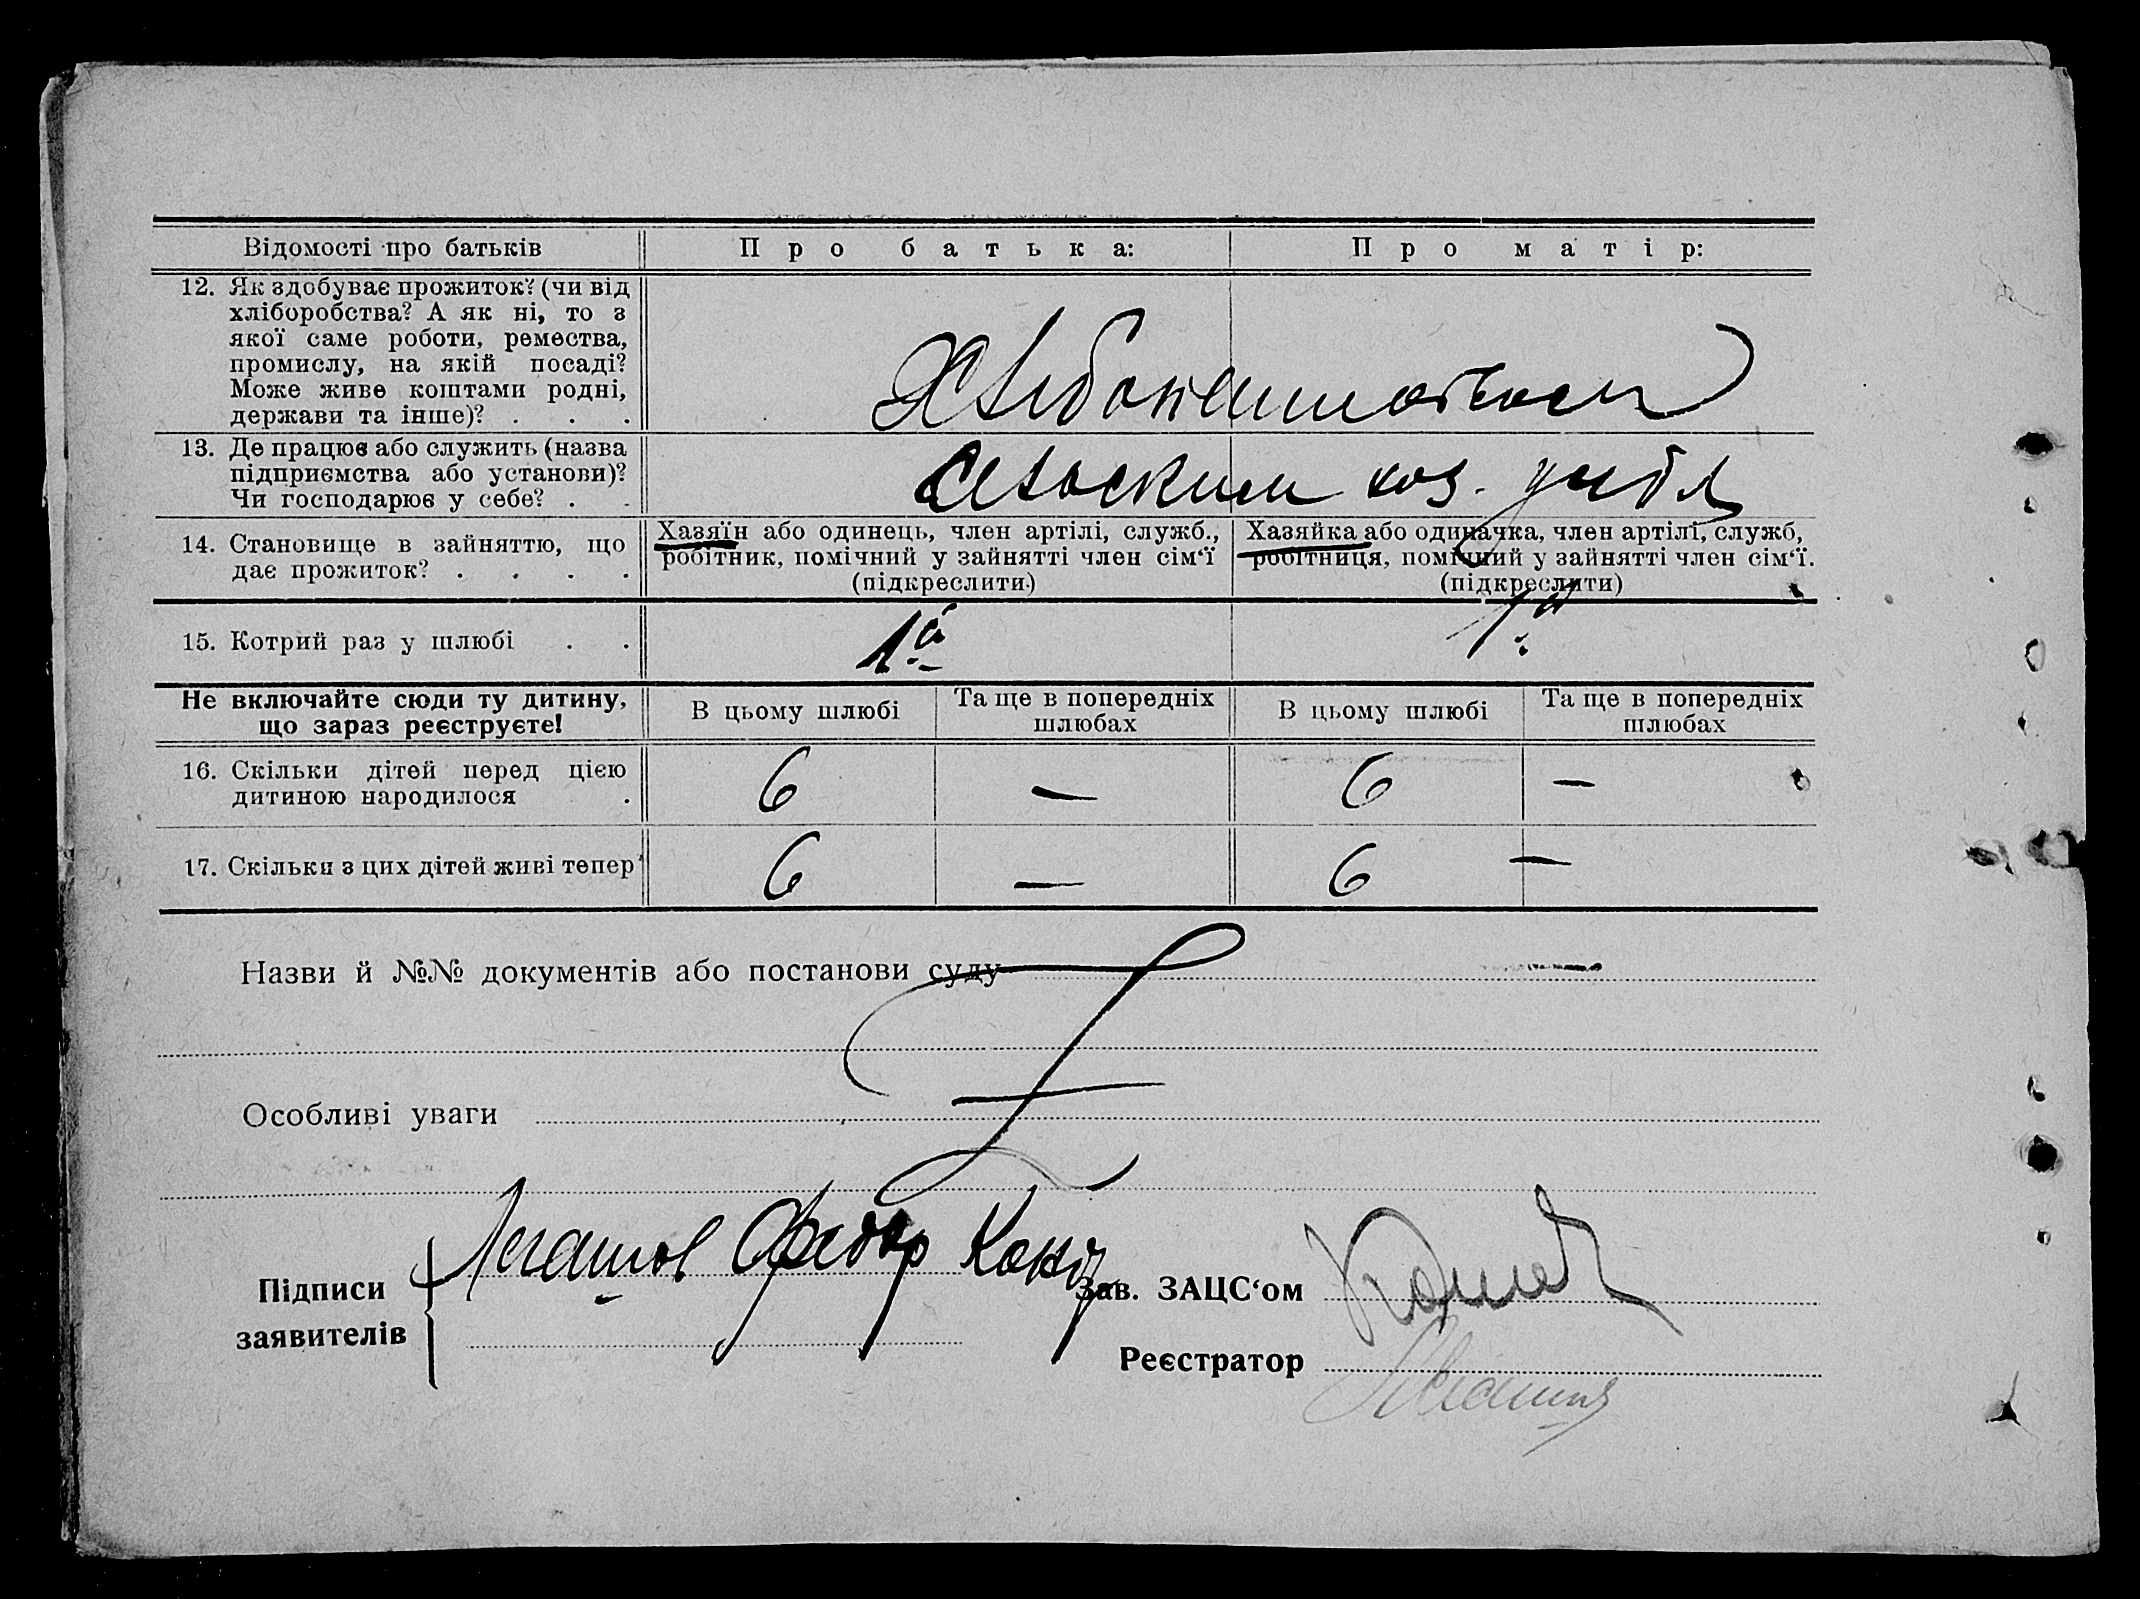 Відомості про батьків
Про батька:
Про матір:
12. Як здобуває прожиток? (чи від
хліборобства? А як ні, то з
якої саме роботи, ремества,
промислу, на якій посаді?
Може живе коштами родні,
держави та інше)? . . .
Хлебопашеством
13. Де працює або служить (назва
підприємства або установи)?
Чи господарює у себе? . .
сельским хоз.
14. Становище в зайняттю, що
дає прожиток? . . . .
Хазяїн або одинець, член артілі, служб.,
робітник, помічний у зайнятті член сім‘ї
(підкреслити)
Хазяйка або одиначка, член артілі, служб,
робітниця, помічний у зайнятті член сім‘ї.
(підкреслити)
15. Котрий раз у шлюбі . .
1й
1й
Не включайте сюди ту дитину,
що зараз реєструєте!
В цьому шлюбі
Та ще в попередніх
шлюбах
В цьому шлюбі
Та ще в попередніх
шлюбах
16. Скільки дітей перед цією
дитиною народилося .
6 — 6 —
17. Скільки з цих дітей живі тепер
6 — 6 —
Назви й №№ документів або постанови суду —
Особливі уваги
Підписи
заявителів
Федор
Зав. ЗАЦС‘ом
Реєстратор